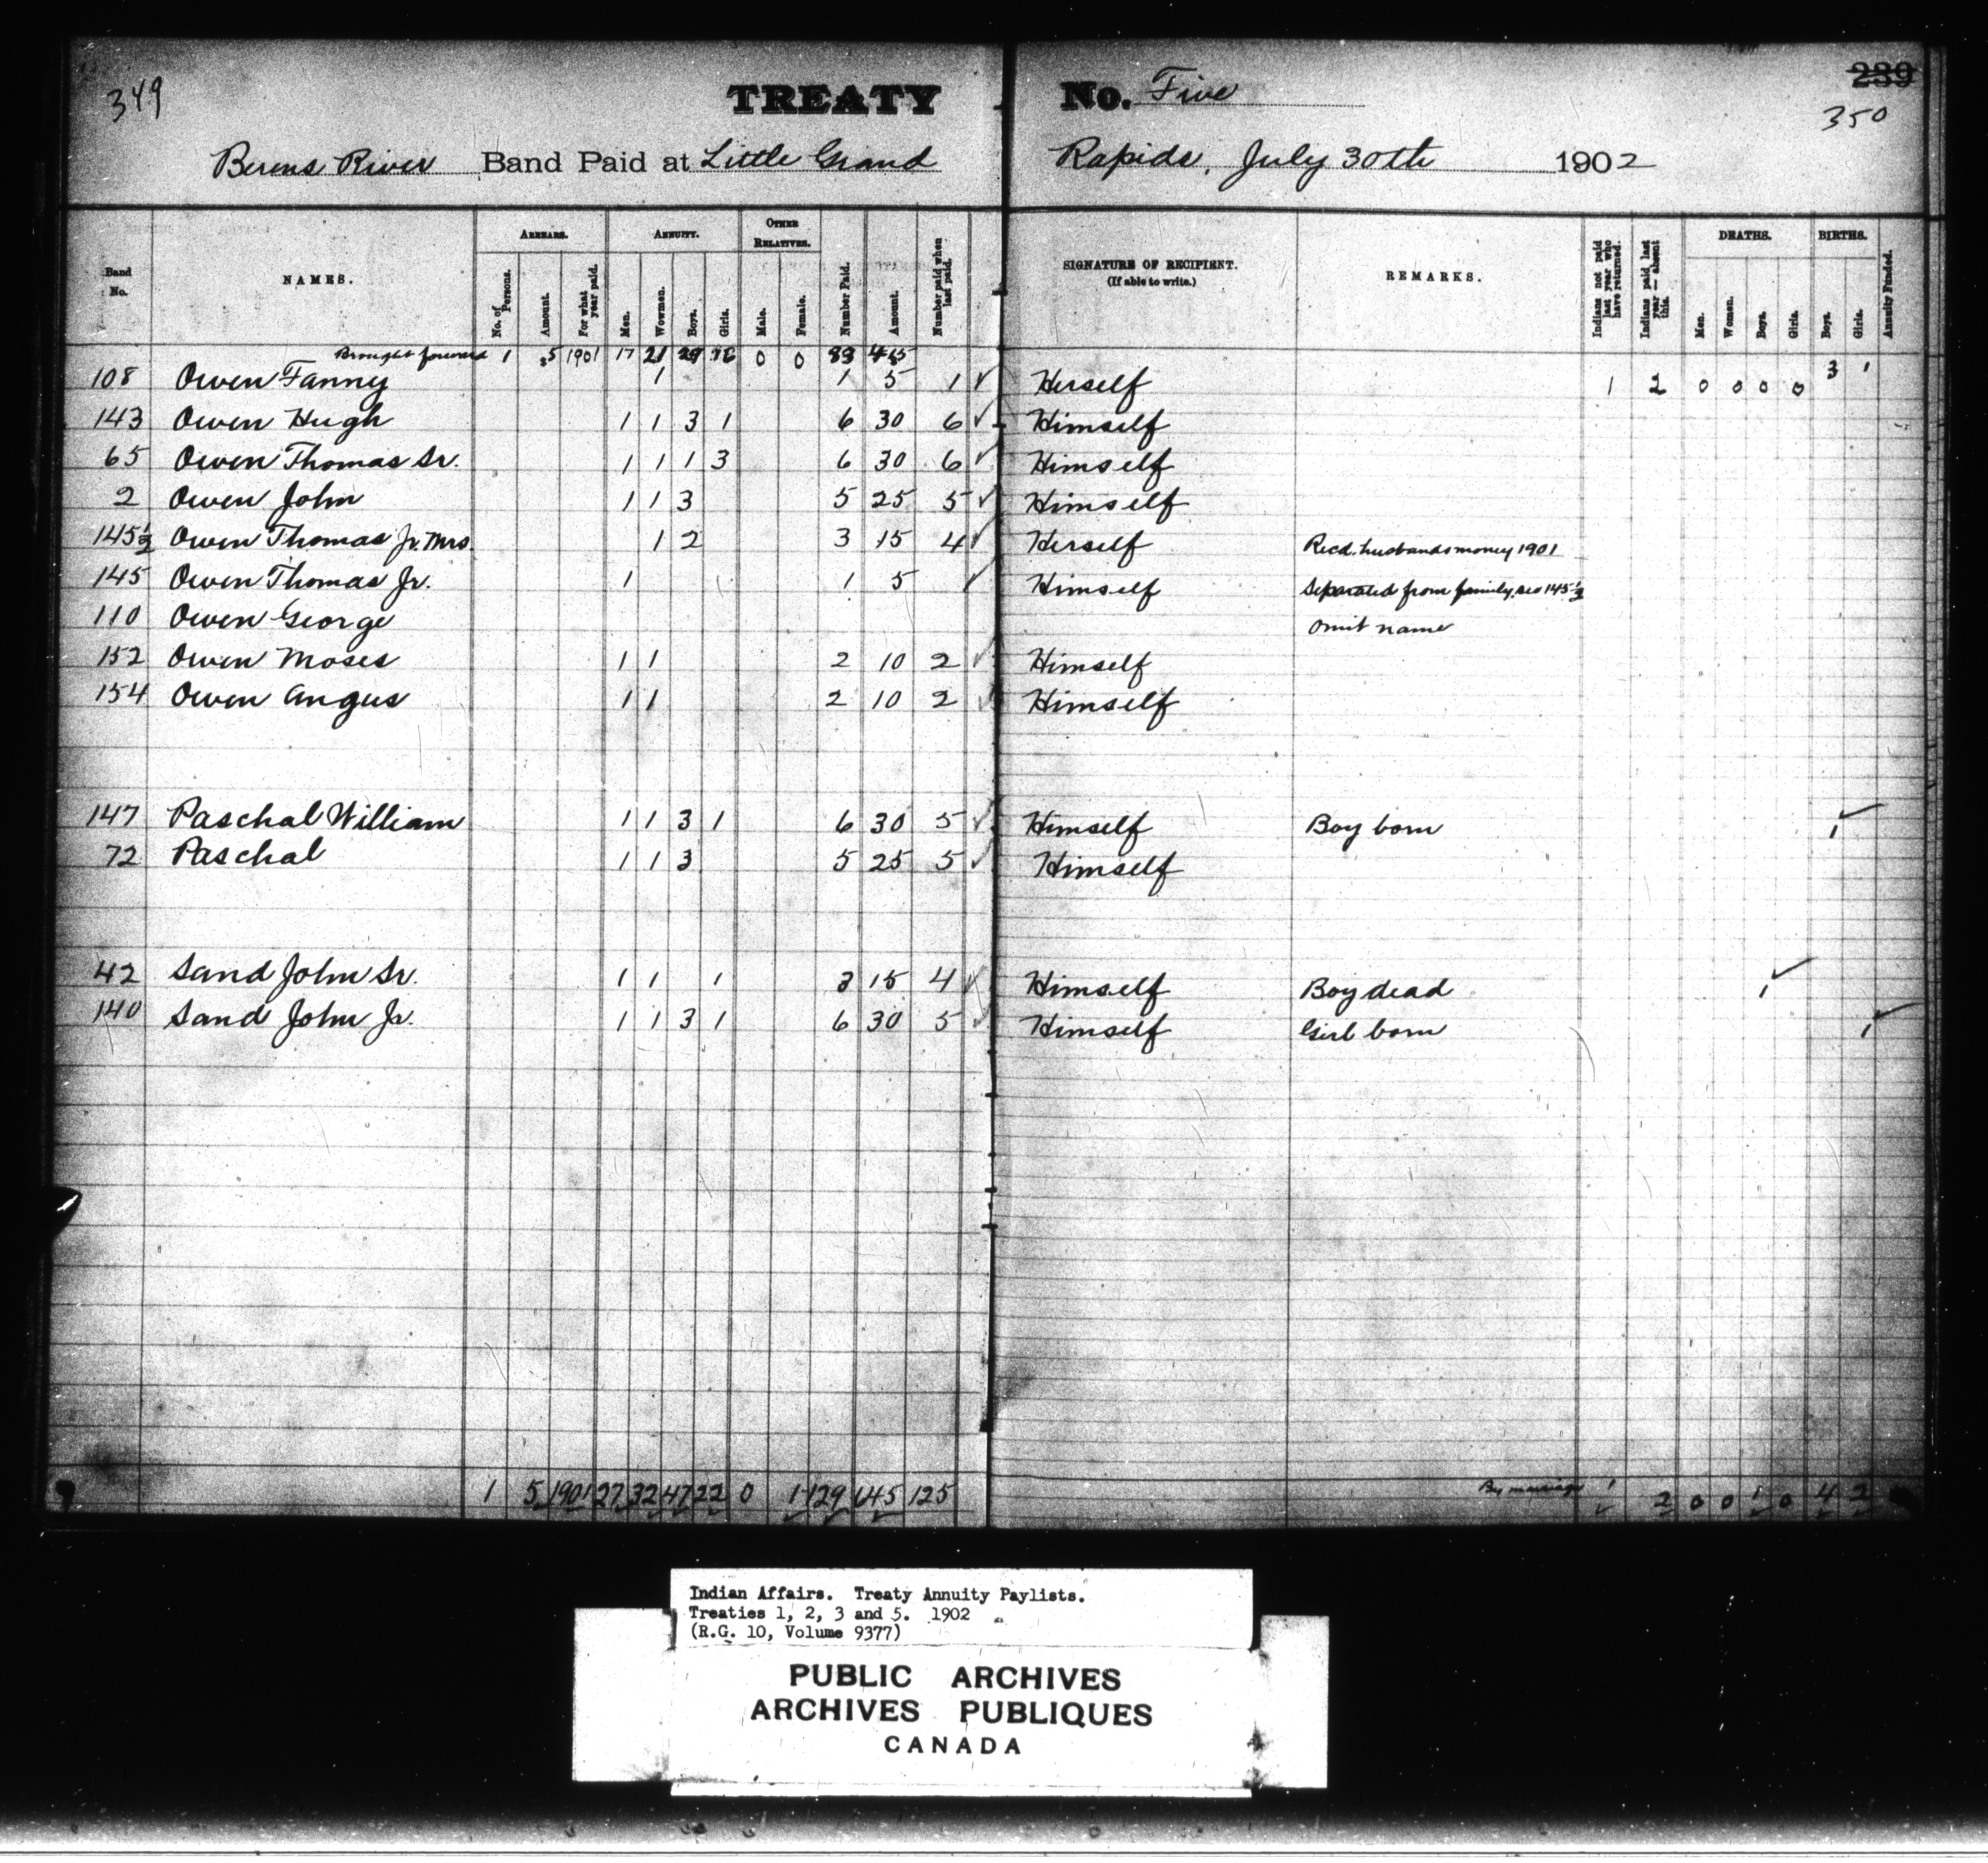 349
TREATY No. Five
239
350
Berens River Band Paid at Little Grand Rapids, July 30th 1902
Band No.
NAMES.
ARREARS.
No. of Persons.
Amount.
For what year paid.
ANNUITY.
Men.
Wowmen.
Boys.
Girls.
OTHER RELATIVES.
Male.
Female.
Number Paid.
Amount.
Number paid when last paid.
SIGNATURE OF RECIPIENT.
(If able to write.)
REMARKS.
Indians not paid last year who have returned.
Indians paid last year—absent this.
DEATHS.
Men.
Women.
Boys.
Girls.
BIRTHS.
Boys.
Girls.
Annuity Funded.
Brought forward 1 $5 1901 17 21 29 16 0 0 83 415 1 2 0 0 0 0 3 1
108 Owen Fanny 1 1 5 1 ✓ Herself
143 Owen Hugh 1 1 3 1 6 30 6 ✓ Himself
65 Owen Thomas Sr. 1 1 1 3 6 30 6 ✓ Himself
2 Owen John 1 1 3 5 25 5 ✓ Himself
145½ Owen Thomas Jr. Mrs 1 2 3 15 4 ✓ Herself Recd. husbands money 1901
145 Owen Thomas Jr. 1 1 5 ✓ Himself Separated from family, see 145½
110 Owen George Omit name
152 Owen Moses 1 1 2 10 2 ✓ Himself
154 Owen Angus 1 1 2 10 2 ✓ Himself
147 Paschal William 1 1 3 1 6 30 5 ✓ Himself Boy born 1 ✓
72 Paschal 1 1 3 5 25 5 ✓ Himself
42 Sand John Sr. 1 1 1 3 15 4 ✓ Himself Boy dead 1 ✓
140 Sand John Jr. 1 1 3 1 6 30 5 ✓ Himself Girl born 1 ✓
1 5 1901 27 32 47 22 0 1 129 645 125 By marriage 1 2 0 0 1 0 4 2
Indian Affairs. Treaty Annuity Paylists.
Treaties 1, 2, 3 and 5. 1902
(R.G. 10, Volume 9377)
PUBLIC ARCHIVES
ARCHIVES PUBLIQUES
CANADA